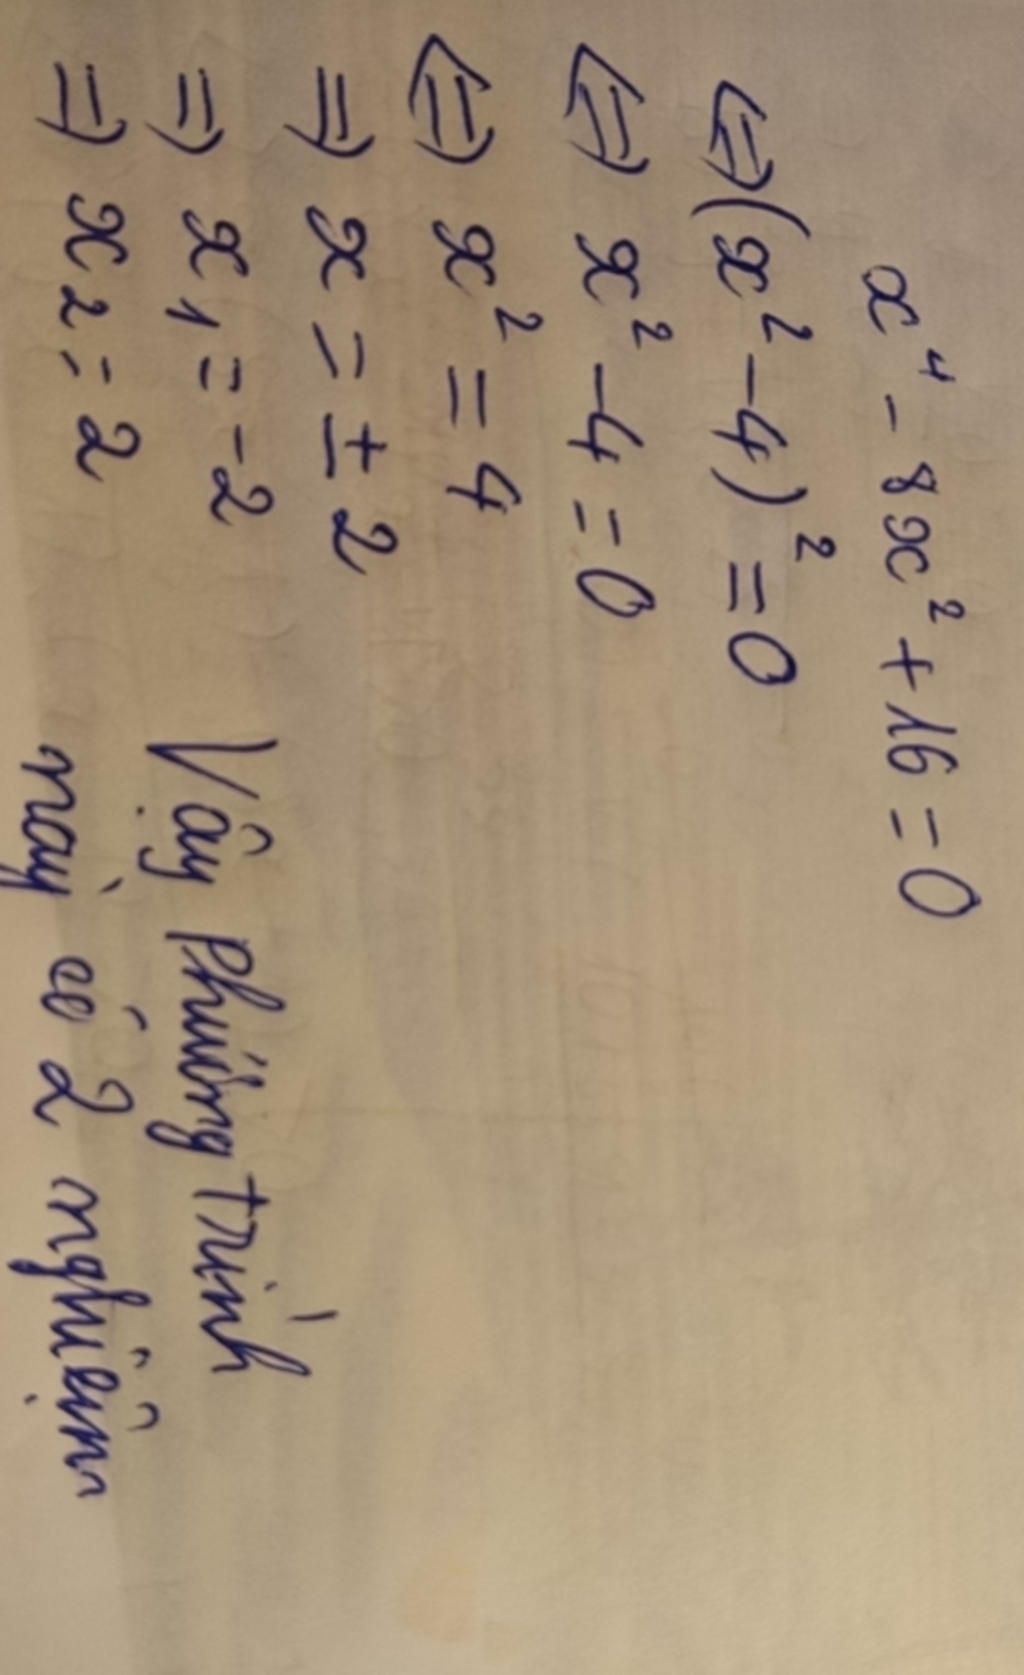 x⁴ - 8x² + 16 = 0
⇔ (x² - 4)² = 0
⇔ x² - 4 = 0
⇔ x² = 4
⇒ x = ± 2
⇒ x₁ = -2
⇒ x₂ = 2
Vậy phương trình
này có 2 nghiệm